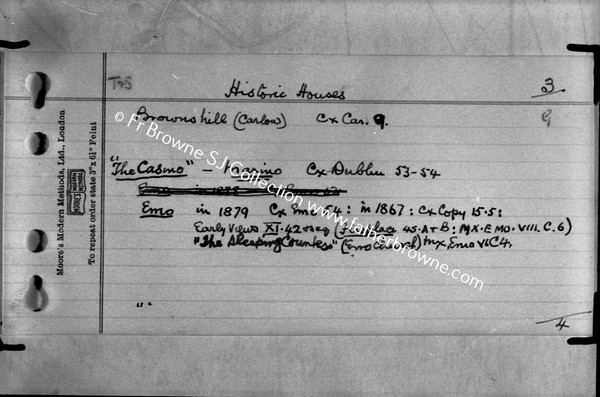 Historic Houses 3
9
Brownshill (Carlow) Cx Car. 9.
"The Casino" - Marino Cx Dublin 53-54
Emo in 1879 Cx Emo 54: in 1867: Cx Copy 15.5:
Early Views XI. 42 (Fireplace 45. A+B: MX. EMO. VIII. C. 6)
"The Sleeping Countess" (Emo Church) Mx, Emo VI C4.
" .
4
Moore's Modern Methods, Ltd., London
To repeat order state 3" x 6½" Feint
© Fr Browne SJ Collection www.fatherbrowne.com